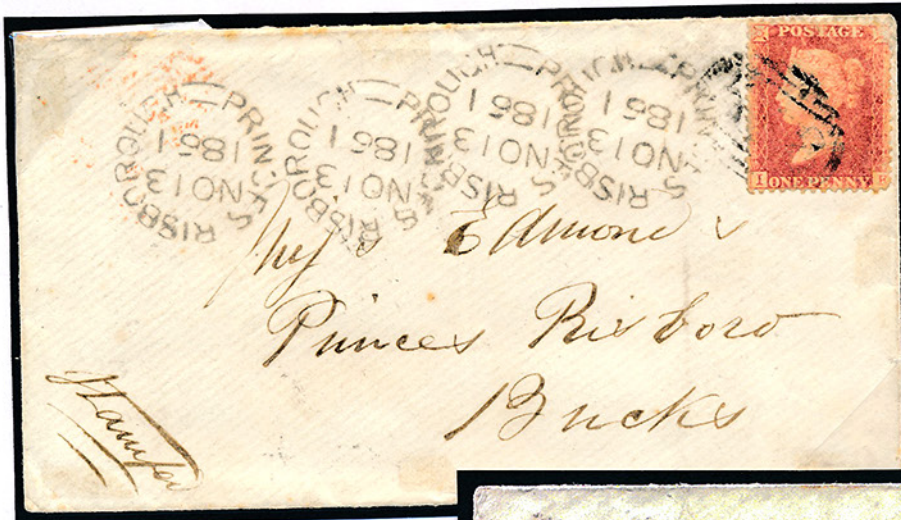 POSTAGE
I ONE PENNY
PRINCES RISBOROUGH
NO 13
1861
PRINCES RISBOROUGH
NO 13
1861
PRINCES RISBOROUGH
NO 13
1861
PRINCES RISBOROUGH
NO 13
1861
Edmonds
Princes Risboro
Bucks